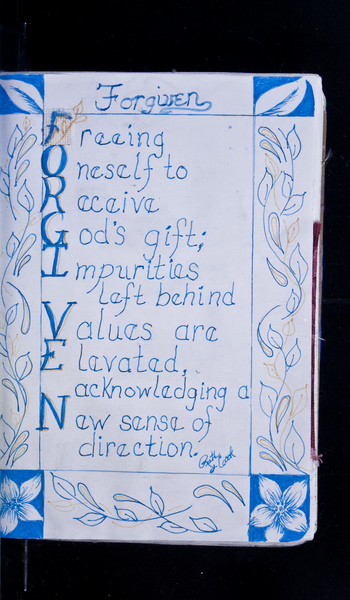 Forgiven
Freeing
Oneself to
Receive
God's gift;
Impurities
left behind
Values are
Elevated,
acknowledging a
New sense of
direction.